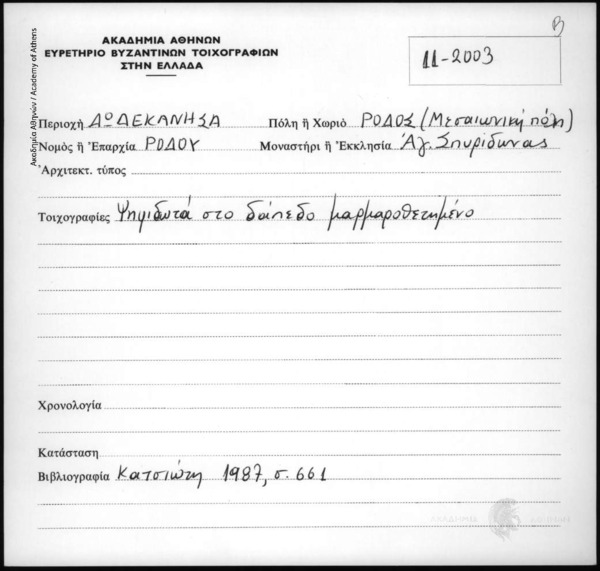 Β
ΑΚΑΔΗΜΙΑ ΑΘΗΝΩΝ
ΕΥΡΕΤΗΡΙΟ ΒΥΖΑΝΤΙΝΩΝ ΤΟΙΧΟΓΡΑΦΙΩΝ
ΣΤΗΝ ΕΛΛΑΔΑ
11-2003
Ακαδημία Αθηνών / Academy of Athens
Περιοχὴ ΔΩΔΕΚΑΝΗΣΑ Πόλη ἢ Χωριό ΡΟΔΟΣ (Μεσαιωνική πόλη)
Νομὸς ἢ Ἐπαρχία ΡΟΔΟΥ Μοναστήρι ἢ Ἐκκλησία Άγ. Σπυρίδωνας
Ἀρχιτεκτ. τύπος
Τοιχογραφίες Ψηφιδωτά στο δάπεδο μαρμαροθετημένο
Χρονολογία
Κατάσταση
Βιβλιογραφία Κατσιώτη 1987, σ. 661